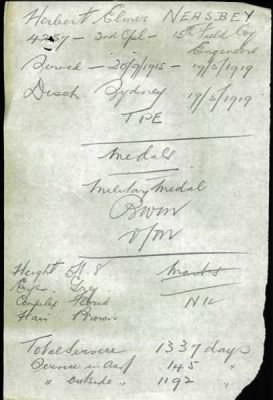 Herbert Elmer NEASBEY
4257 - 2nd Cpl - 15th Field Coy
Engineers
Served - 20/9/1915 - 19/5/1919
Disch Sydney 19/5/1919
TPE
Medals
Military Medal
BWM
VM
Height 5ft. 8 Marks
Eyes Grey NIL
Complex Florid
Hair Brown
Total Service 1337 days
Service in Aust 145 "
" Outside " 1192 "